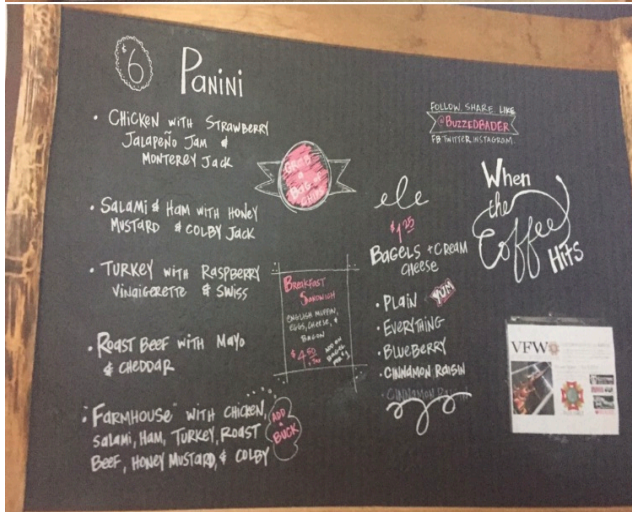 $6 Panini
• Chicken with Strawberry
Jalapeño Jam &
Monterey Jack
• Salami & Ham with Honey
Mustard & Colby Jack
• Turkey with Raspberry
Vinaigerette & Swiss
• Roast Beef with Mayo
& Cheddar
• Farmhouse with Chicken,
Salami, Ham, Turkey, Roast
Beef, Honey Mustard, & Colby
ADD
A
BUCK
Grab
a
Bag of
Chips
Breakfast
Sandwich
English Muffin,
Eggs, Cheese, &
Bacon
$4.50
Follow Share Like
@BuzzedBader
FB Twitter Instagram
$1.25
Bagels + Cream
Cheese
• Plain
YUM
• Everything
• Blueberry
• Cinnamon Raisin
When
the
Coffee
Hits
VFW